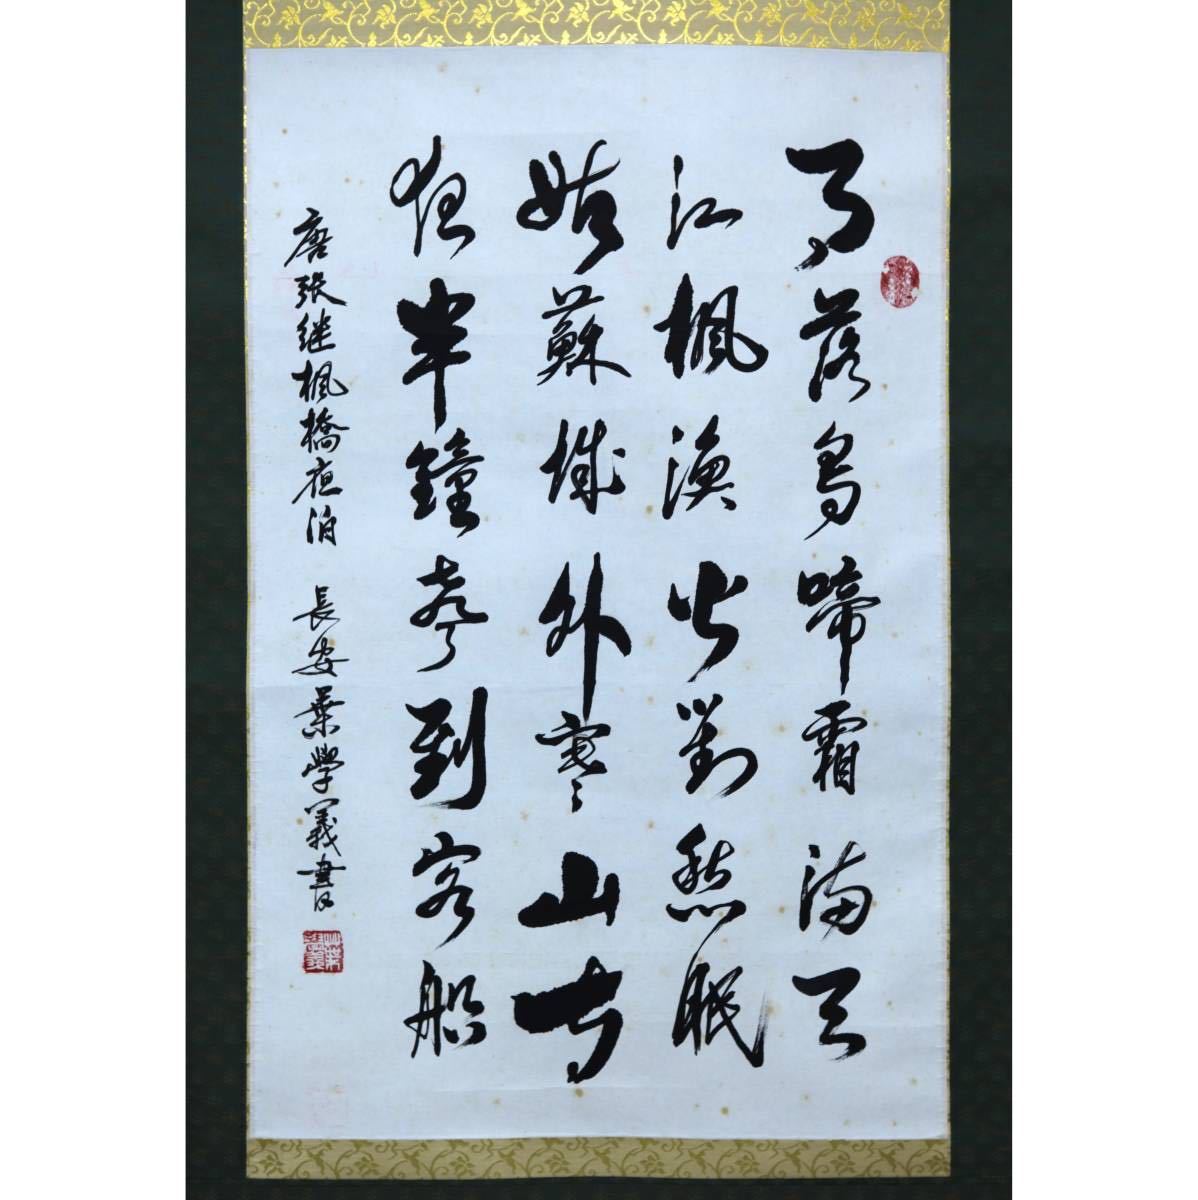 月落烏啼霜満天
江楓漁火對愁眠
姑蘇城外寒山寺
夜半鐘聲到客船
唐張継楓橋夜泊 長安葉學義書